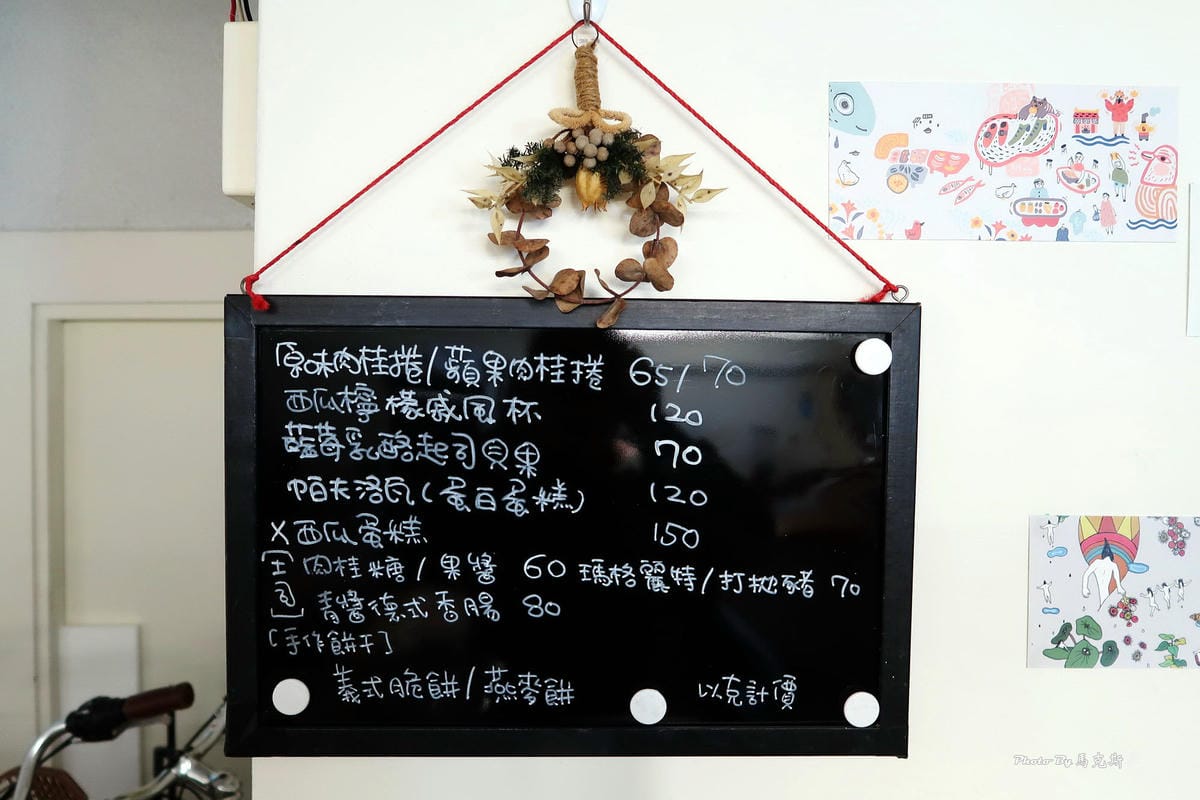 原味肉桂捲/蘋果肉桂捲 65/70
西瓜檸檬戚風杯 120
藍莓乳酪起司貝果 70
帕夫洛瓦(蛋白蛋糕) 120
X西瓜蛋糕 150
[土司]
肉桂糖/果醬 60 瑪格麗特/打拋豬 70
青醬德式香腸 80
[手作餅干]
義式脆餅/燕麥餅 以克計價
Photo By 馬克斯